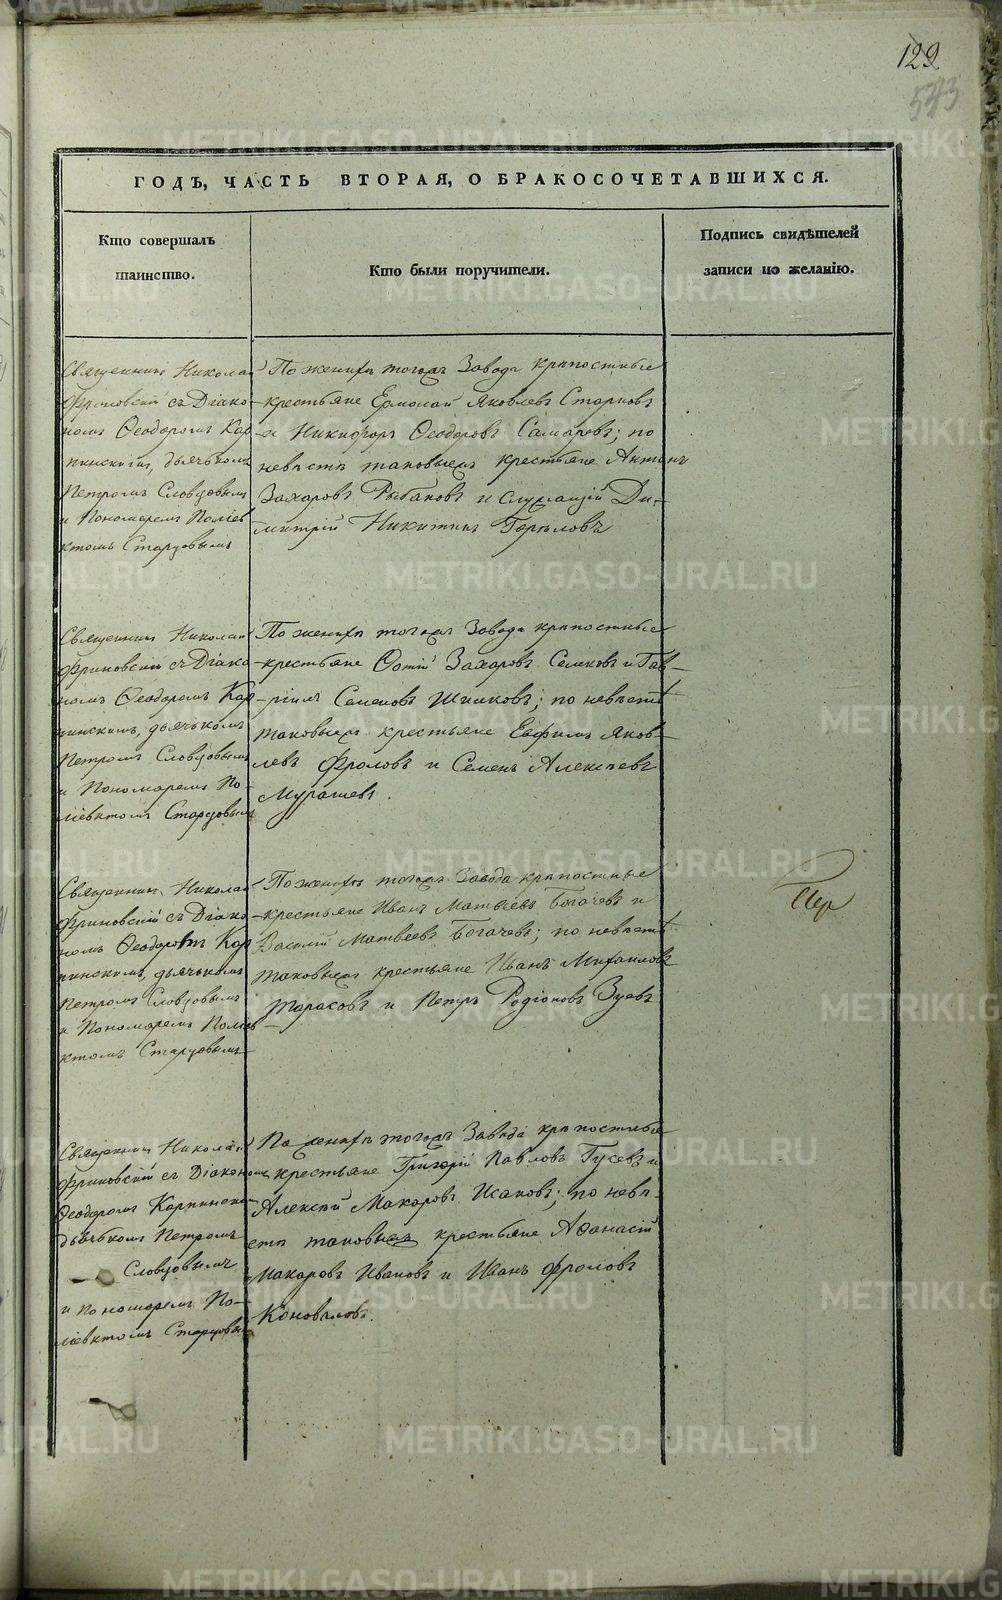 122
573
ГОДЪ, ЧАСТЬ ВТОРАЯ, О БРАКОСОЧЕТАВШИХСЯ.
Кто совершалъ
таинство.
Кто были поручители.
Подпись свидѣтелей
записи по желанію.
Священникъ Николай
Фриновскій съ Діако-
номъ Ѳеодоромъ Кар-
пинскимъ, дьячькомъ
Петромъ Словцовымъ
и Пономаремъ Поліев-
ктомъ Старцовымъ
По женихѣ тогожъ Завода крѣпостные
крестьяне Ермолай Яковлевъ Старковъ
и Никифоръ Ѳеодоровъ Самаревъ; по
невѣстѣ таковыежъ крестьяне Антонъ
Захаровъ Рыбаковъ и служащій Ди-
митрій Никитинъ Горѣловъ
Священникъ Николай
Фриновскій съ Діако-
номъ Ѳеодоромъ Кар-
пинскимъ, дьячькомъ
Петромъ Словцовымъ
и Пономаремъ По-
ліевктомъ Старцовымъ
По женихѣ тогожъ Завода крѣпостные
крестьяне Фотій Захаровъ Семковъ и Гав-
ріилъ Семеновъ Шишковъ; по невѣстѣ
таковыежъ крестьяне Евфимъ Яков-
левъ Фроловъ и Семенъ Алексѣевъ
Мурашевъ.
Священникъ Николай
Фриновскій съ Діако-
номъ Ѳеодоромъ Кар-
пинскимъ, дьячькомъ
Петромъ Словцовымъ
и Пономаремъ Поліев-
ктомъ Старцовымъ
По женихѣ тогожъ Завода крѣпостные
крестьяне Иванъ Матвѣевъ Богачевъ и
Василій Матвеевъ Богачевъ; по невѣстѣ
таковыежъ крестьяне Иванъ Михаиловъ
Тарасовъ и Петръ Родіоновъ Зуевъ
Пер
Священникъ Николай
Фриновскій съ Діакономъ
Ѳеодоромъ Карпинскимъ
дьячькомъ Петромъ
Словцовымъ
и Пономаремъ По-
ліевктомъ Старцовымъ
По женихѣ тогожъ Завода крѣпостные
крестьяне Григорій Павловъ Гусевъ и
Алексѣй Макаровъ Исаковъ; по невѣ-
стѣ таковыежъ крестьяне Аѳанасій
Макаровъ Ивановъ и Иванъ Фроловъ
Коноваловъ.
METRIKI.GASO-URAL.RU